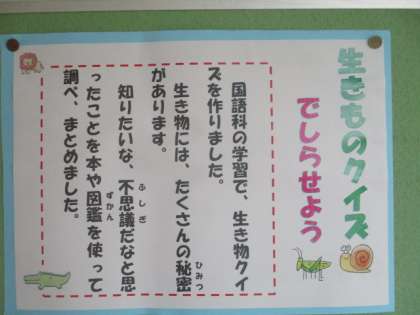 生きものクイズ
でしらせよう
国語科の学習で、生き物クイ
ズを作りました。
生き物には、たくさんの秘密
ひみつ
があります。
知りたいな、不思議だなと思
ふしぎ
ったことを本や図鑑を使って
ずかん
調べ、まとめました。